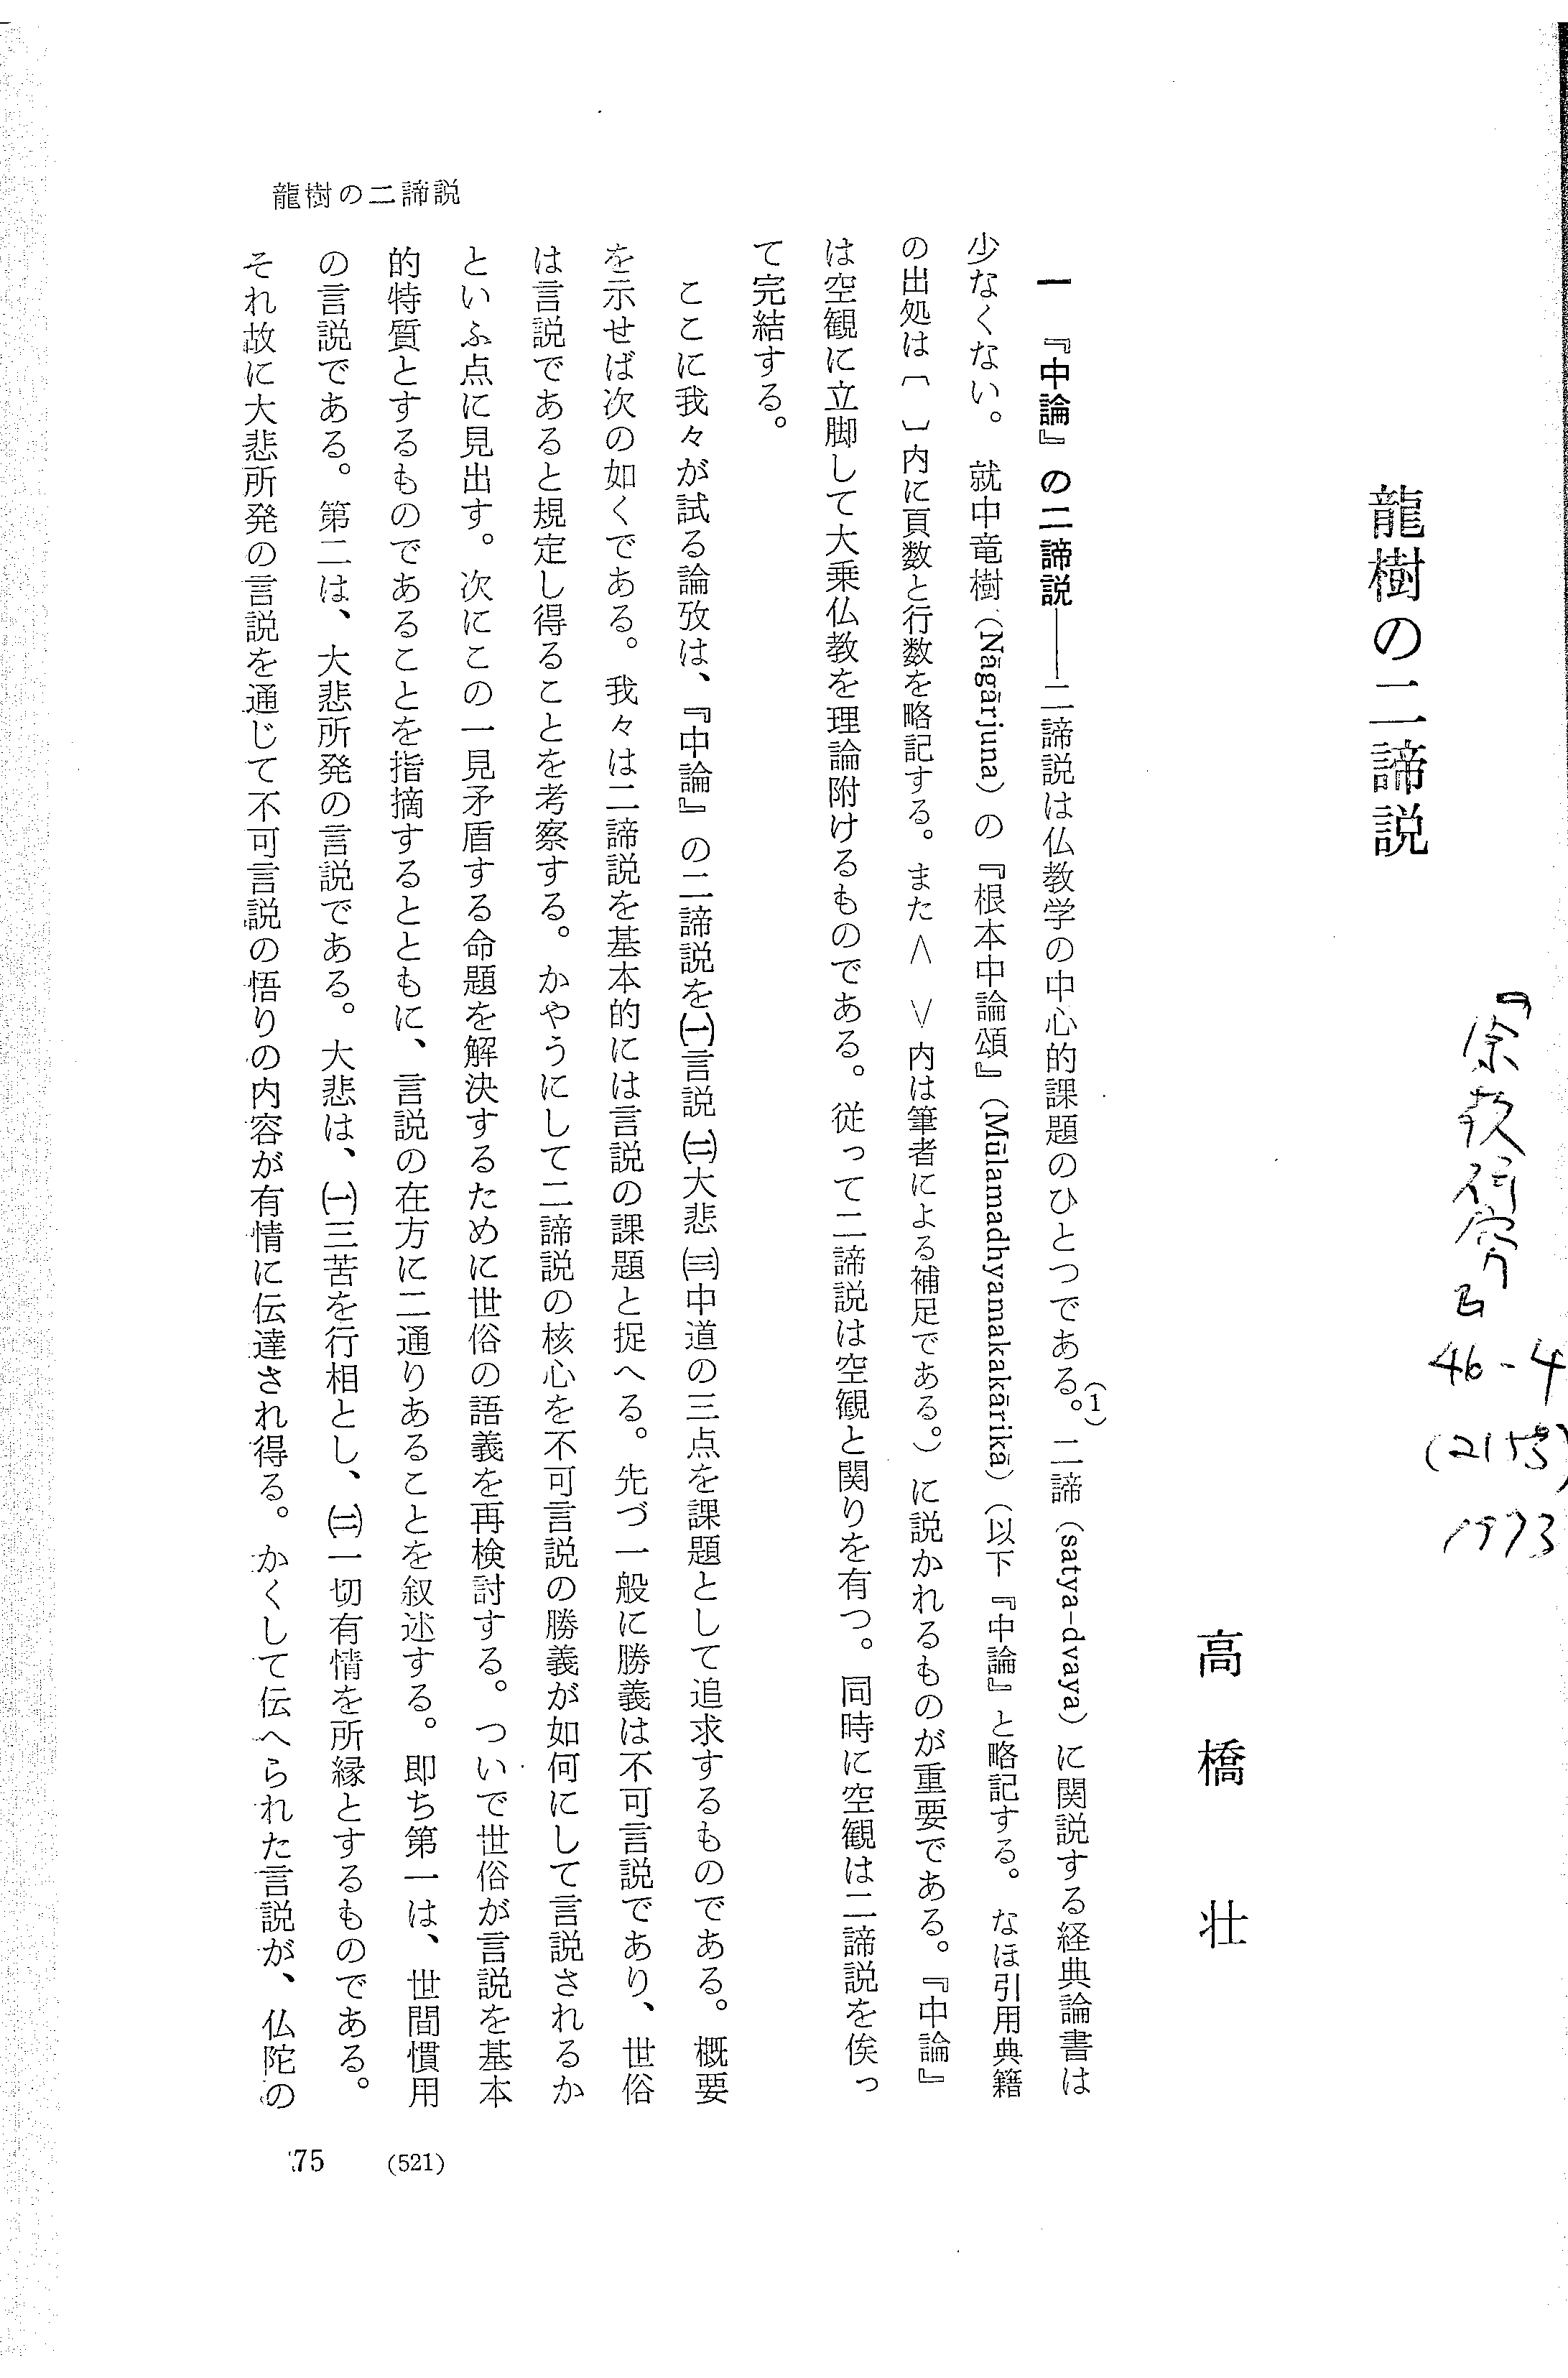 龍樹の二諦説
『宗教研究』
46-4
(215号)
1973
高橋 壮
一 『中論』の二諦説――二諦説は仏教学の中心的課題のひとつである。(1)二諦（satya-dvaya）に関説する経典論書は
少なくない。就中竜樹（Nāgārjuna）の『根本中論頌』（Mūlamadhyamakakārikā）（以下『中論』と略記する。なほ引用典籍
の出処は〔　〕内に頁数と行数を略記する。また＜　＞内は筆者による補足である。）に説かれるものが重要である。『中論』
は空観に立脚して大乗仏教を理論附けるものである。従って二諦説は空観と関りを有つ。同時に空観は二諦説を俟っ
て完結する。
ここに我々が試る論攷は、『中論』の二諦説を㈠言説㈡大悲㈢中道の三点を課題として追求するものである。概要
を示せば次の如くである。我々は二諦説を基本的には言説の課題と捉へる。先づ一般に勝義は不可言説であり、世俗
は言説であると規定し得ることを考察する。かやうにして二諦説の核心を不可言説の勝義が如何にして言説されるか
といふ点に見出す。次にこの一見矛盾する命題を解決するために世俗の語義を再検討する。ついで世俗が言説を基本
的特質とするものであることを指摘するとともに、言説の在方に二通りあることを叙述する。即ち第一は、世間慣用
の言説である。第二は、大悲所発の言説である。大悲は、㈠三苦を行相とし、㈡一切有情を所縁とするものである。
それ故に大悲所発の言説を通じて不可言説の悟りの内容が有情に伝達され得る。かくして伝へられた言説が、仏陀の
龍樹の二諦説
75 (521)